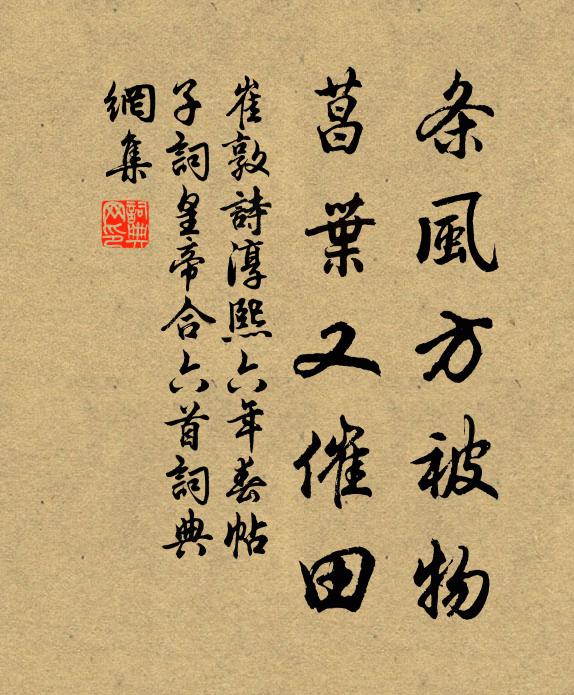 条風方被物
菖葉又催田
崔敦詩淳熙六年春帖
子詞皇帝合六首詞典
網集
詞典
网印